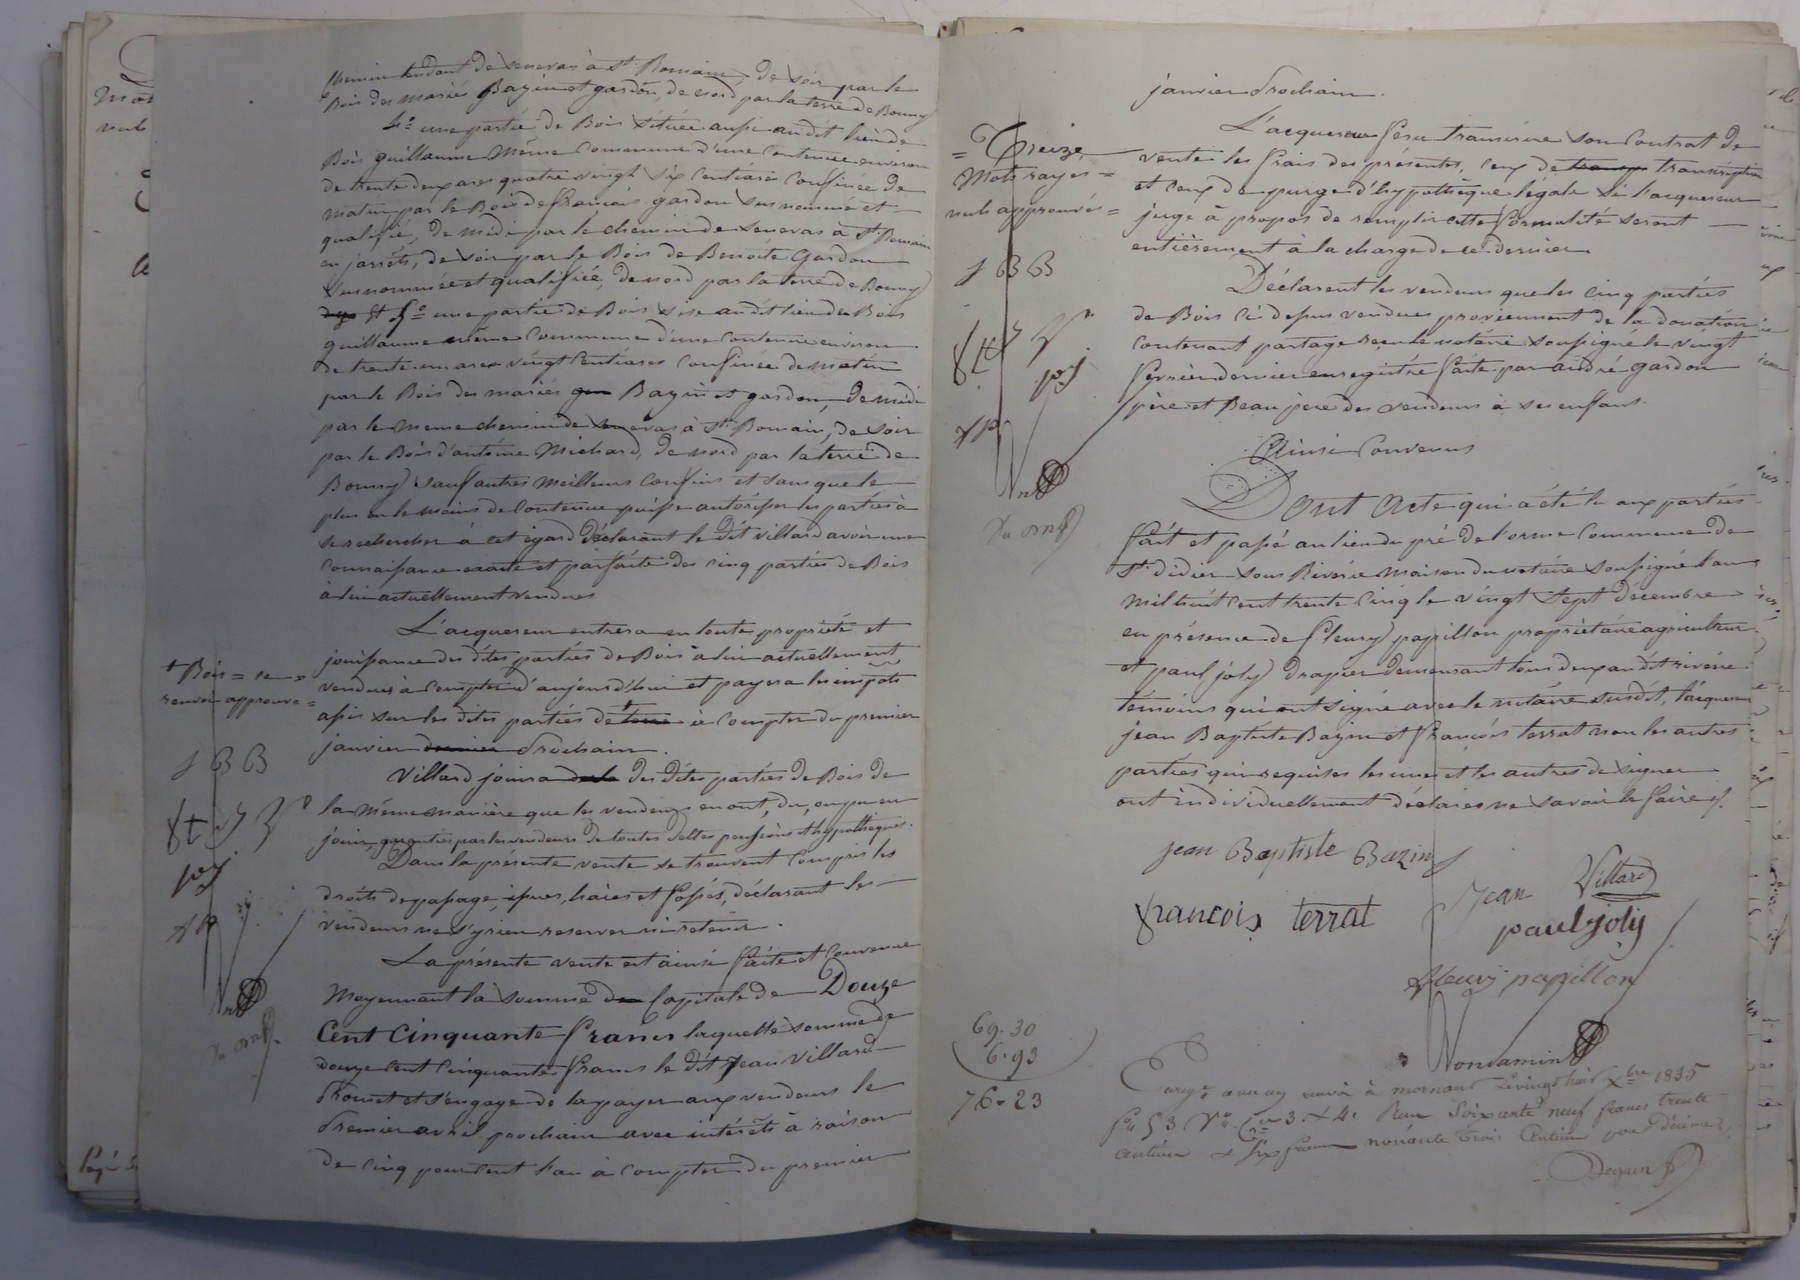 chemin tendant de seneras à St. Romain, de soir par le
Bois des mariés Bazin et gardon, de nord par la terre de Bourry
4.o une partie de Bois située aussi au dit lieu de
Bois guillaume même commune d'une contenue environ
de trente deux ares quatre vingt six centiares confinée de
matin par le Bois de francois gardon susnommé et
qualifié, de midi par le chemin de seneras à St. Romain
en jarrêts, de soir par le Bois de Benoite Gardon
susnommée et qualifiée, de nord par la terre de Bourry
Et 5.o une partie de Bois sise au dit lieu du Bois
guillaume même commune d'une contenue environ
de trente un ares vingt centiares confinée de matin
par le Bois des mariés Bazin et gardon, de midi
par le meme chemin de seneras à St. Romain, de soir
par le Bois d'antoine Michard, de nord par la terre de
Bourry sauf autres meilleurs confins et sans que le
plus ou le moins de contenue puisse autoriser les parties à
se rechercher à cet égard déclarant le dit villard avoir une
connaissance exacte et parfaite des cinq parties de Bois
à lui actuellement vendues
L'acquereur entrera en toute propriété et
jouissance des dites parties de Bois à lui actuellement
vendues à compter d'aujourd'hui et payera les impôts
assis sur les dites parties de + terre à compter du premier
janvier dernier Prochain.
Villard jouira des dites parties de Bois de
la même manière que les vendeurs en ont, du, ou pu en
jouir, garanties par les vendeurs de toutes dettes pensions et hypothèques.
Dans la présente vente se trouvent compris les
droits de passage, issues, haies et fossés, déclarant les
vendeurs ne s'y rien reserver ni retenir.
La présente vente est ainsi faite et convenue
Moyennant la somme de Capitale de Douze
Cent Cinquante francs laquelle somme de
douze cent cinquante francs le dit jean villard
Promet et s'engage de la payer aux vendeurs le
Premier avril prochain avec intérêts à raison
de cinq pour cent l'an à compter du premier
+ Bois = ce
renvoi approuvé =
J B B
ft
pj
janvier Prochain.
L'acquereur fera transcrire son contrat de
vente les frais des présentes, ceux de transcription
et ceux de purge d'hypothèque légale si l'acquereur
juge à propos de remplir cette formalité seront
entièrement à la charge de ce dernier
Déclarent les vendeurs que les cinq parties
de Bois ci dessus vendues proviennent de la donation
contenant partage reçue le notaire soussigné le vingt
fevrier dernier enregistré faite par andré gardon
père et Beau pere des vendeurs à ses enfans.
Ainsi Convenus
Dont Acte qui a été lu aux parties
fait et passé au lieu du pré de l'orme commune de
St. didier sous Riverie maison du notaire soussigné l'an
mil huit cent trente cinq le vingt sept décembre
en présence de fleury papillon propriétaire agriculteur
et paul joly drapier demeurant tous deux au dit riverie
témoins qui ont signé avec le notaire susdit, l'acquereur
jean Baptiste Bazin et françois terrat non les autres
parties qui requises les unes et les autres de signer
ont individuellement déclaré ne savoir le faire
= Treize
Mots rayés =
nuls approuvés =
J B B
ft
pj
jean Baptiste Bazin
Jean Villard
francois terrat
paul joly
fleury papillon
69.30
6.93
76.23
Enreg.é à mornant le vingt huit Xbre 1835
f.o 53 V.o C.es 3 & 4. Reçu Soixante neuf francs trente
centimes & six francs nonante trois Centimes pour décime